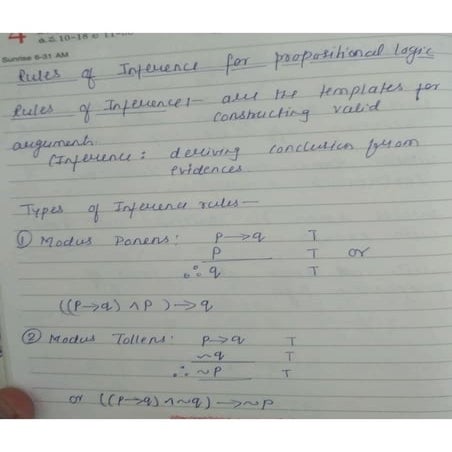 4
Sunrise 6-31 AM
Rules of Inference for propositional logic
Rules of Inference:- are the templates for
constructing valid
argument.
(Inference: deriving conclusion from
evidences
Types of Inference rules—
① Modus Ponens: P→q T
P T or
∴ q T
((P→q) ∧ P) → q
② Modus Tollens: P→q T
~q T
∴ ~P T
or ((P→q) ∧ ~q) → ~P